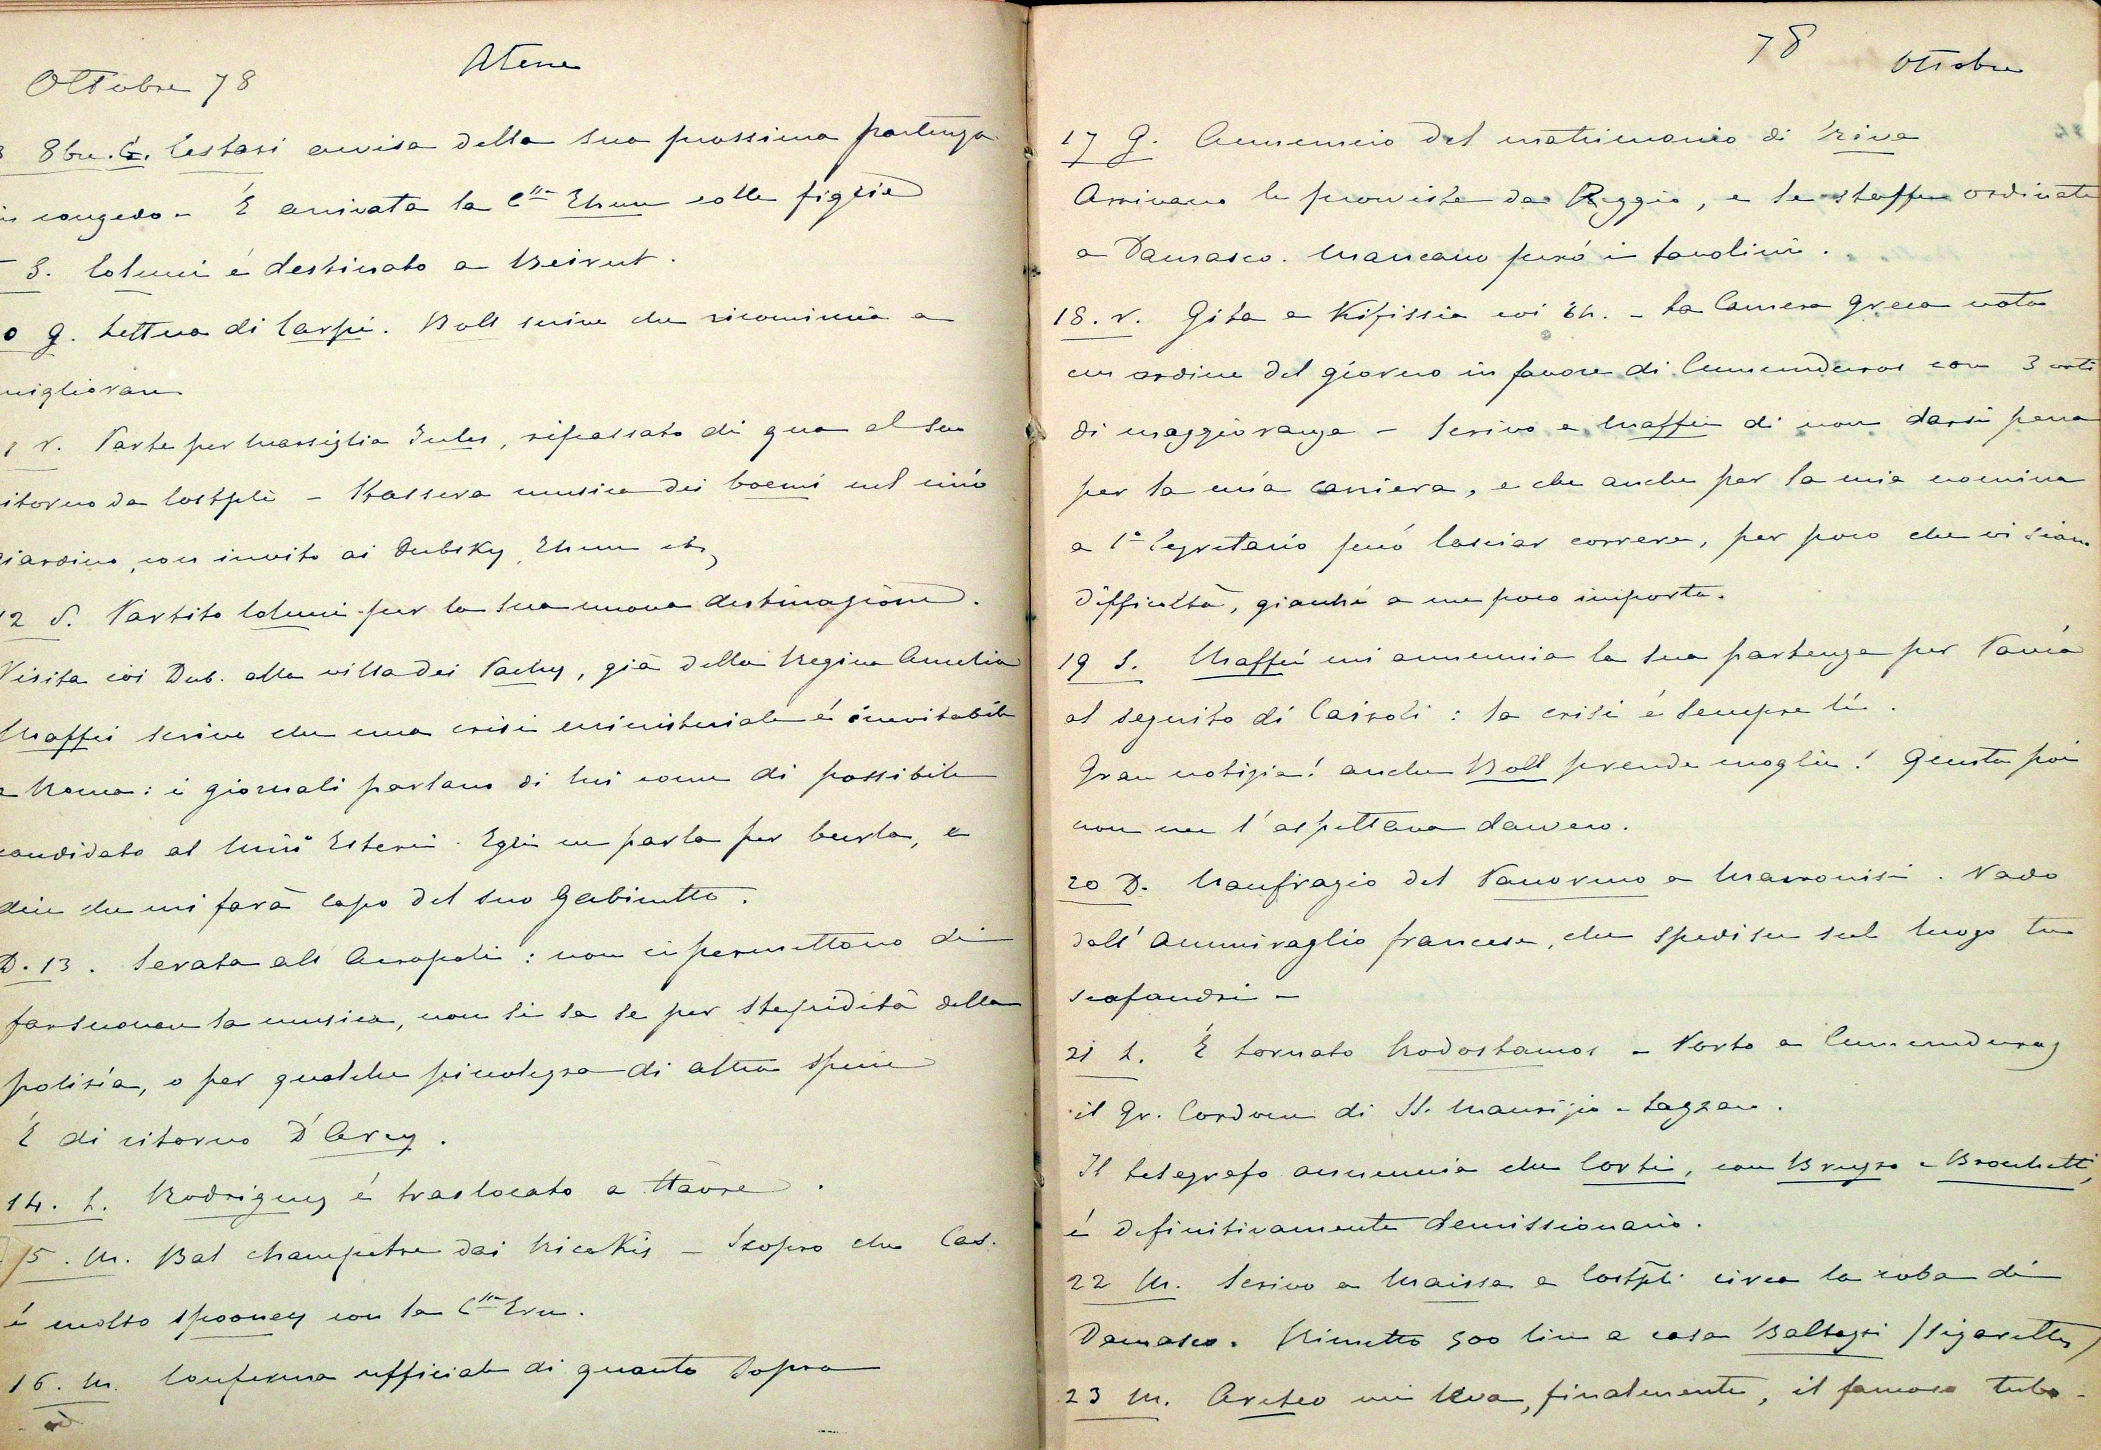 Ottobre 78
Atene
8bre. G. Cestari avvisa della sua prossima partenza
in congedo - È arrivata la C.ssa colle figlie
S. Colucci é destinato a Beirut.
G. Lettera di Carpi. Boll scrive che ricomincia a
migliorare
V. Parte per Marsiglia Jules, ripassato di qua al suo
ritorno da Costpli - Stassera musica dei boemi nel mio
giardino, con invito ai Dubsky, etc,
12 S. Partito Colucci per la sua nuova destinazione.
Visita coi Dub. alla villa dei, già della Regina Amelia
Maffei scrive che una crisi ministeriale é inevitabile
a Roma: i giornali parlano di lui come di possibile
candidato al Mino Esteri. Egli ne parla per burla, e
dice che mi farà capo del suo Gabinetto.
D. 13. Serata all' Acropoli: non ci permettono di
far suonare la musica, non si sa se per stupidità della
polizia, o per qualche picca di altra specie
È di ritorno D'Arcy.
14. L. Rodriguez é traslocato a Hâvre.
15. M. Bal champêtre dai - Scopro che Cas.
é molto spooney con la C.ssa
16. M. Conferma ufficiale di quanto sopra
78
Ottobre
17 G. Annuncio del matrimonio di Riva
Arrivano le provviste da Reggio, e le stoffe ordinate
a Damasco. Mancano però i tavolini.
18. V. Gita a Kifissia coi - La Camera greca vota
un ordine del giorno in favore di Cumunduros con 3 voti
di maggioranza - Scrivo a Maffei di non darsi pena
per la mia carriera, e che anche per la mia nomina
a 1° Segretario può lasciar correre, per poco che vi siano
difficoltà, giacché a me poco importa.
19 S. Maffei mi annuncia la sua partenza per Pavia
al seguito di Cairoli: la crisi é sempre lì.
Gran notizia! anche Boll prende moglie! Questa poi
non me l'aspettavo davvero.
20 D. Naufragio del Panormo a Macronisi. Vado
dall'Ammiraglio francese, che spedisce sul luogo tre
scafandri -
21 L. È tornato Rodostamos - Porto a Cumunduros
il Gr. Cordone di SS. Maurizio e Lazzaro.
Il telegrafo annuncia che Corti, con Bruzzo e Brocchetti,
é definitivamente demissionario.
22 M. Scrivo a Maissa a Costpli circa la roba di
Damasco. Rimetto 500 lire a casa Baltazzi (sigarette)
23 M. Areteo mi leva, finalmente, il famoso tubo.